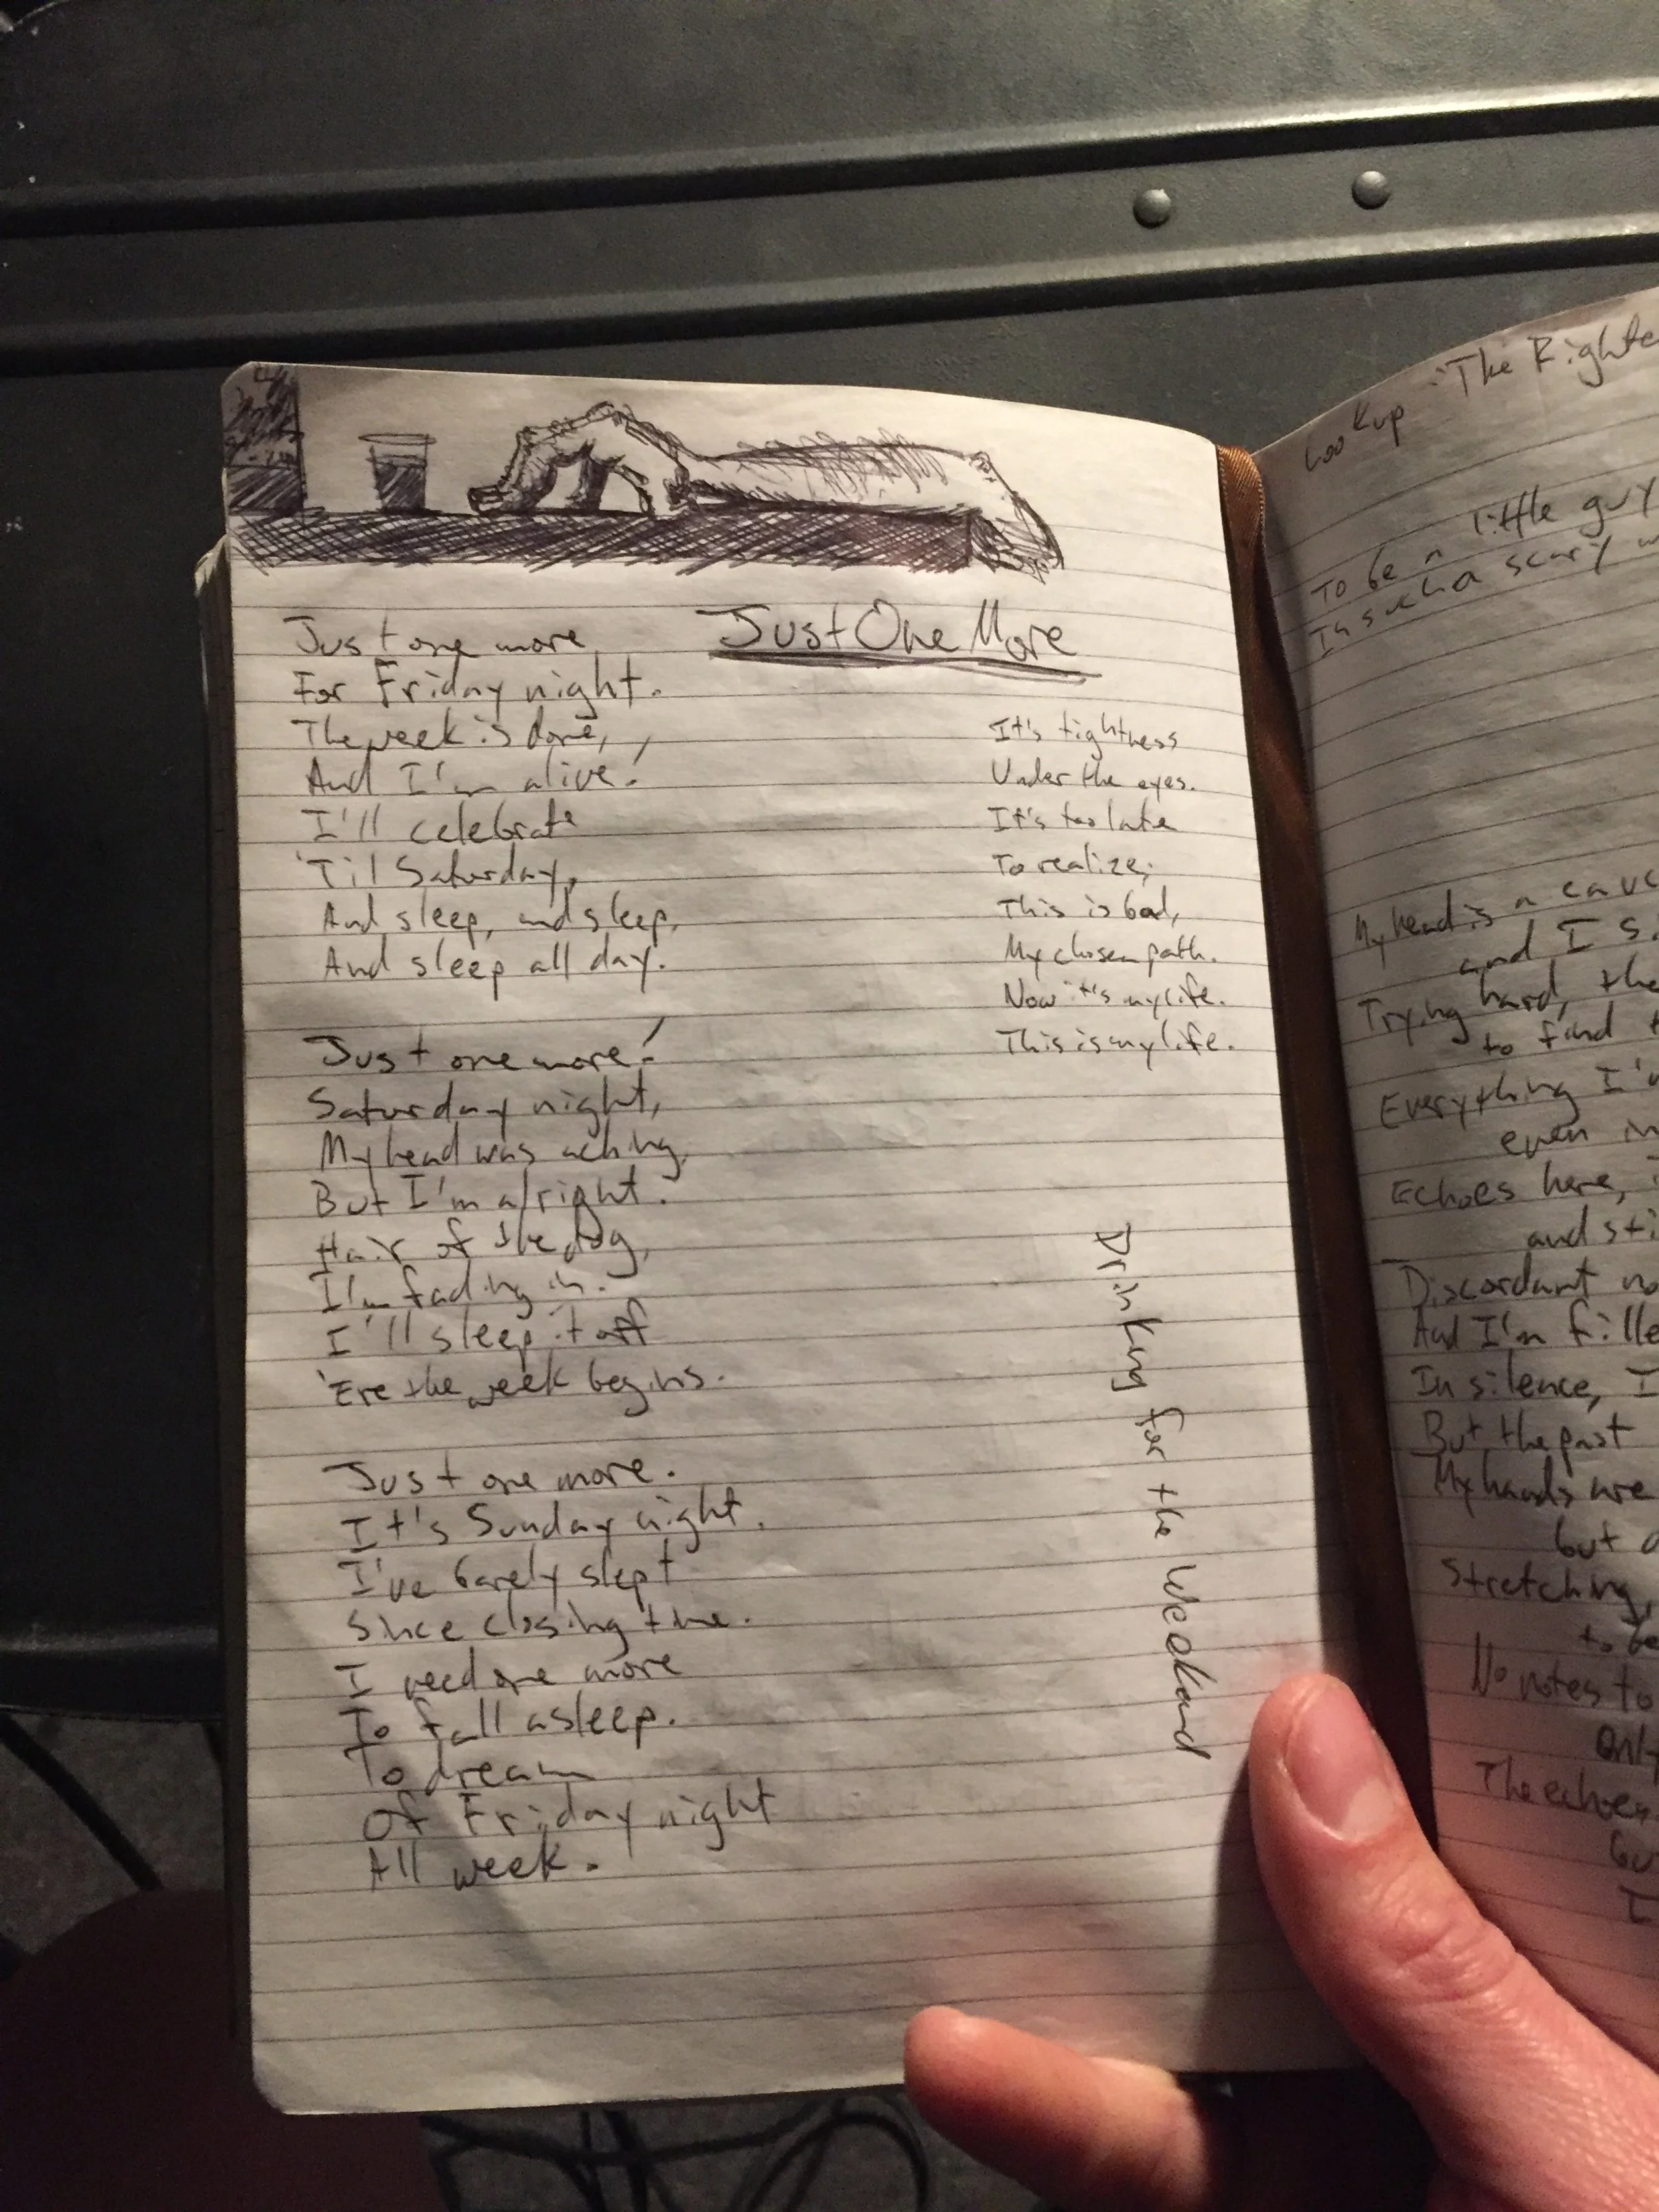 Just One More
Just one more
For Friday night.
The week is done,
And I'm alive!
I'll celebrate
'Til Saturday,
And sleep, and sleep,
And sleep all day.
Just one more!
Saturday night,
My head was aching,
But I'm alright.
Hair of the dog,
I'm fading in.
I'll sleep it off
'Ere the week begins.
Just one more.
It's Sunday night.
I've barely slept
Since closing time.
I need one more
To fall asleep.
To dream
Of Friday night
All week.
It's tightness
Under the eyes.
It's too late
To realize;
This is bad,
My chosen path.
Now it's my life.
This is my life.
Drinking for the weekend
Lookup "The
To be a little guy
In such a scary
My head is a
and I
Trying hard, the
to find
Everything
even in
Echoes here,
and
Discordant
And I'm
In silence, I
But the past
My hands are
but
Stretching,
to be
No notes to
Only
The echoes
I